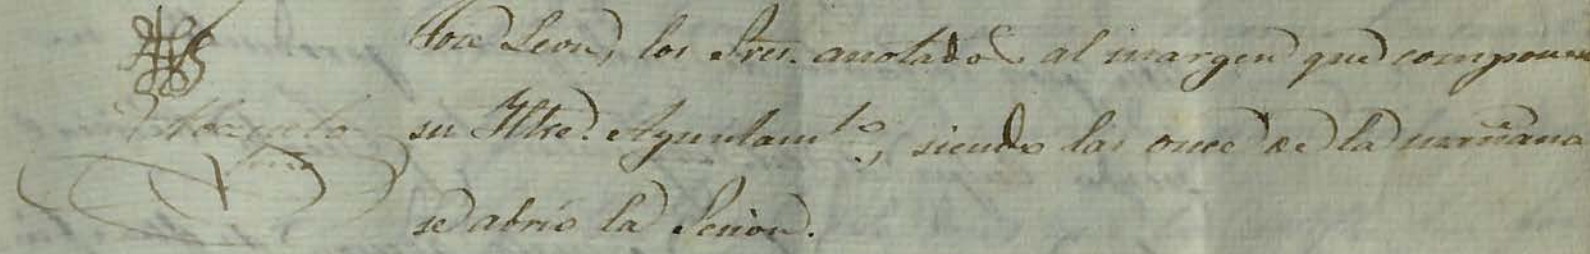 José Leon, los Sres. anotados al margen que componen
su Iltre. Ayuntamto, siendo las once de la mañana
se abrió la Sesion.